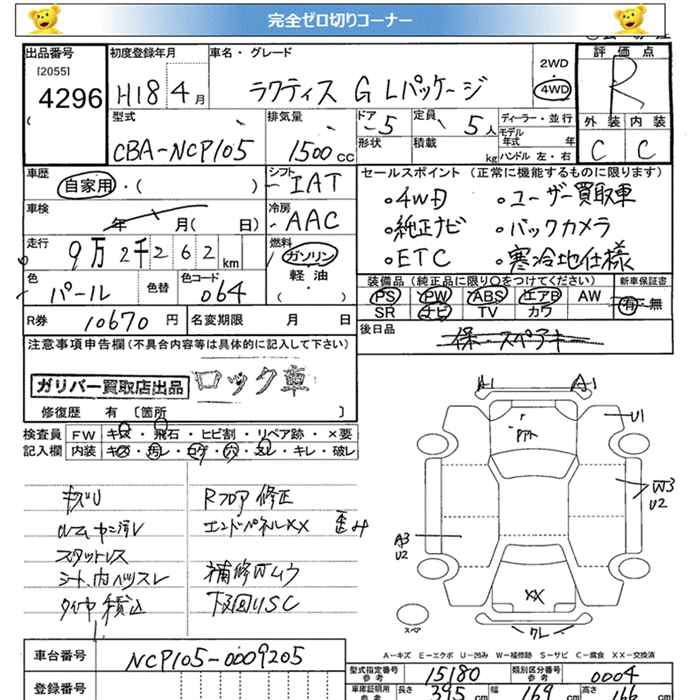 完全ゼロ切りコーナー
出品番号
[2055]
4296
初度登録年月
H18 4月
車名・グレード
ラクティス G Lパッケージ
2WD
4WD
評価点
R
外装 内装
C C
型式
CBA-NCP105
排気量
1500 cc
ドア
-5
形状
定員
5人
積載
kg
ディーラー・並行
モデル年式 年
ハンドル 左・右
車歴
自家用・( )
シフト
IAT
車検
年 月( 日)
冷房
AAC
走行
9万2千262 km
燃料
ガソリン
軽油
( ・ )
色
パール
色替
色コード
064
R券 10670 円
名変期限 月 日
セールスポイント (正常に機能するものに限ります)
○4WD ○ユーザー買取車
○純正ナビ ○バックカメラ
○ETC ○寒冷地仕様
装備品(純正品に限り○をつけてください)
PS PW ABS エアB AW
SR ナビ TV カワ
新車保証書
有・無
後日品
保・スペアキー
注意事項申告欄(不具合内容等は具体的に記入して下さい)
ガリバー買取店出品 ロック車
修復歴 有 〔箇所 〕
検査員記入欄
FW キズ・飛石・ヒビ割・リペア跡・×要
内装 キズ・汚レ・コゲ・穴・スレ・キレ・破レ
キズU
ルームヤニ汚レ
スタットレス
シート、内ヘリスレ
タイヤ積込
Rフロア修正
エンドパネルXX 歪み
補修ムラ
下回りSC
A1
A1
U1
W3
U2
A3
U2
XX
ワレ
スペア
A-キズ E-エクボ U-凹み W-補修跡 S-サビ C-腐食 XX-交換済
車台番号
NCP105-0009205
登録番号
型式指定番号
参考
15180
類別区分番号
参考
0004
車庫証明用
参考
長さ 395 cm
幅 169 cm
高さ 166 cm